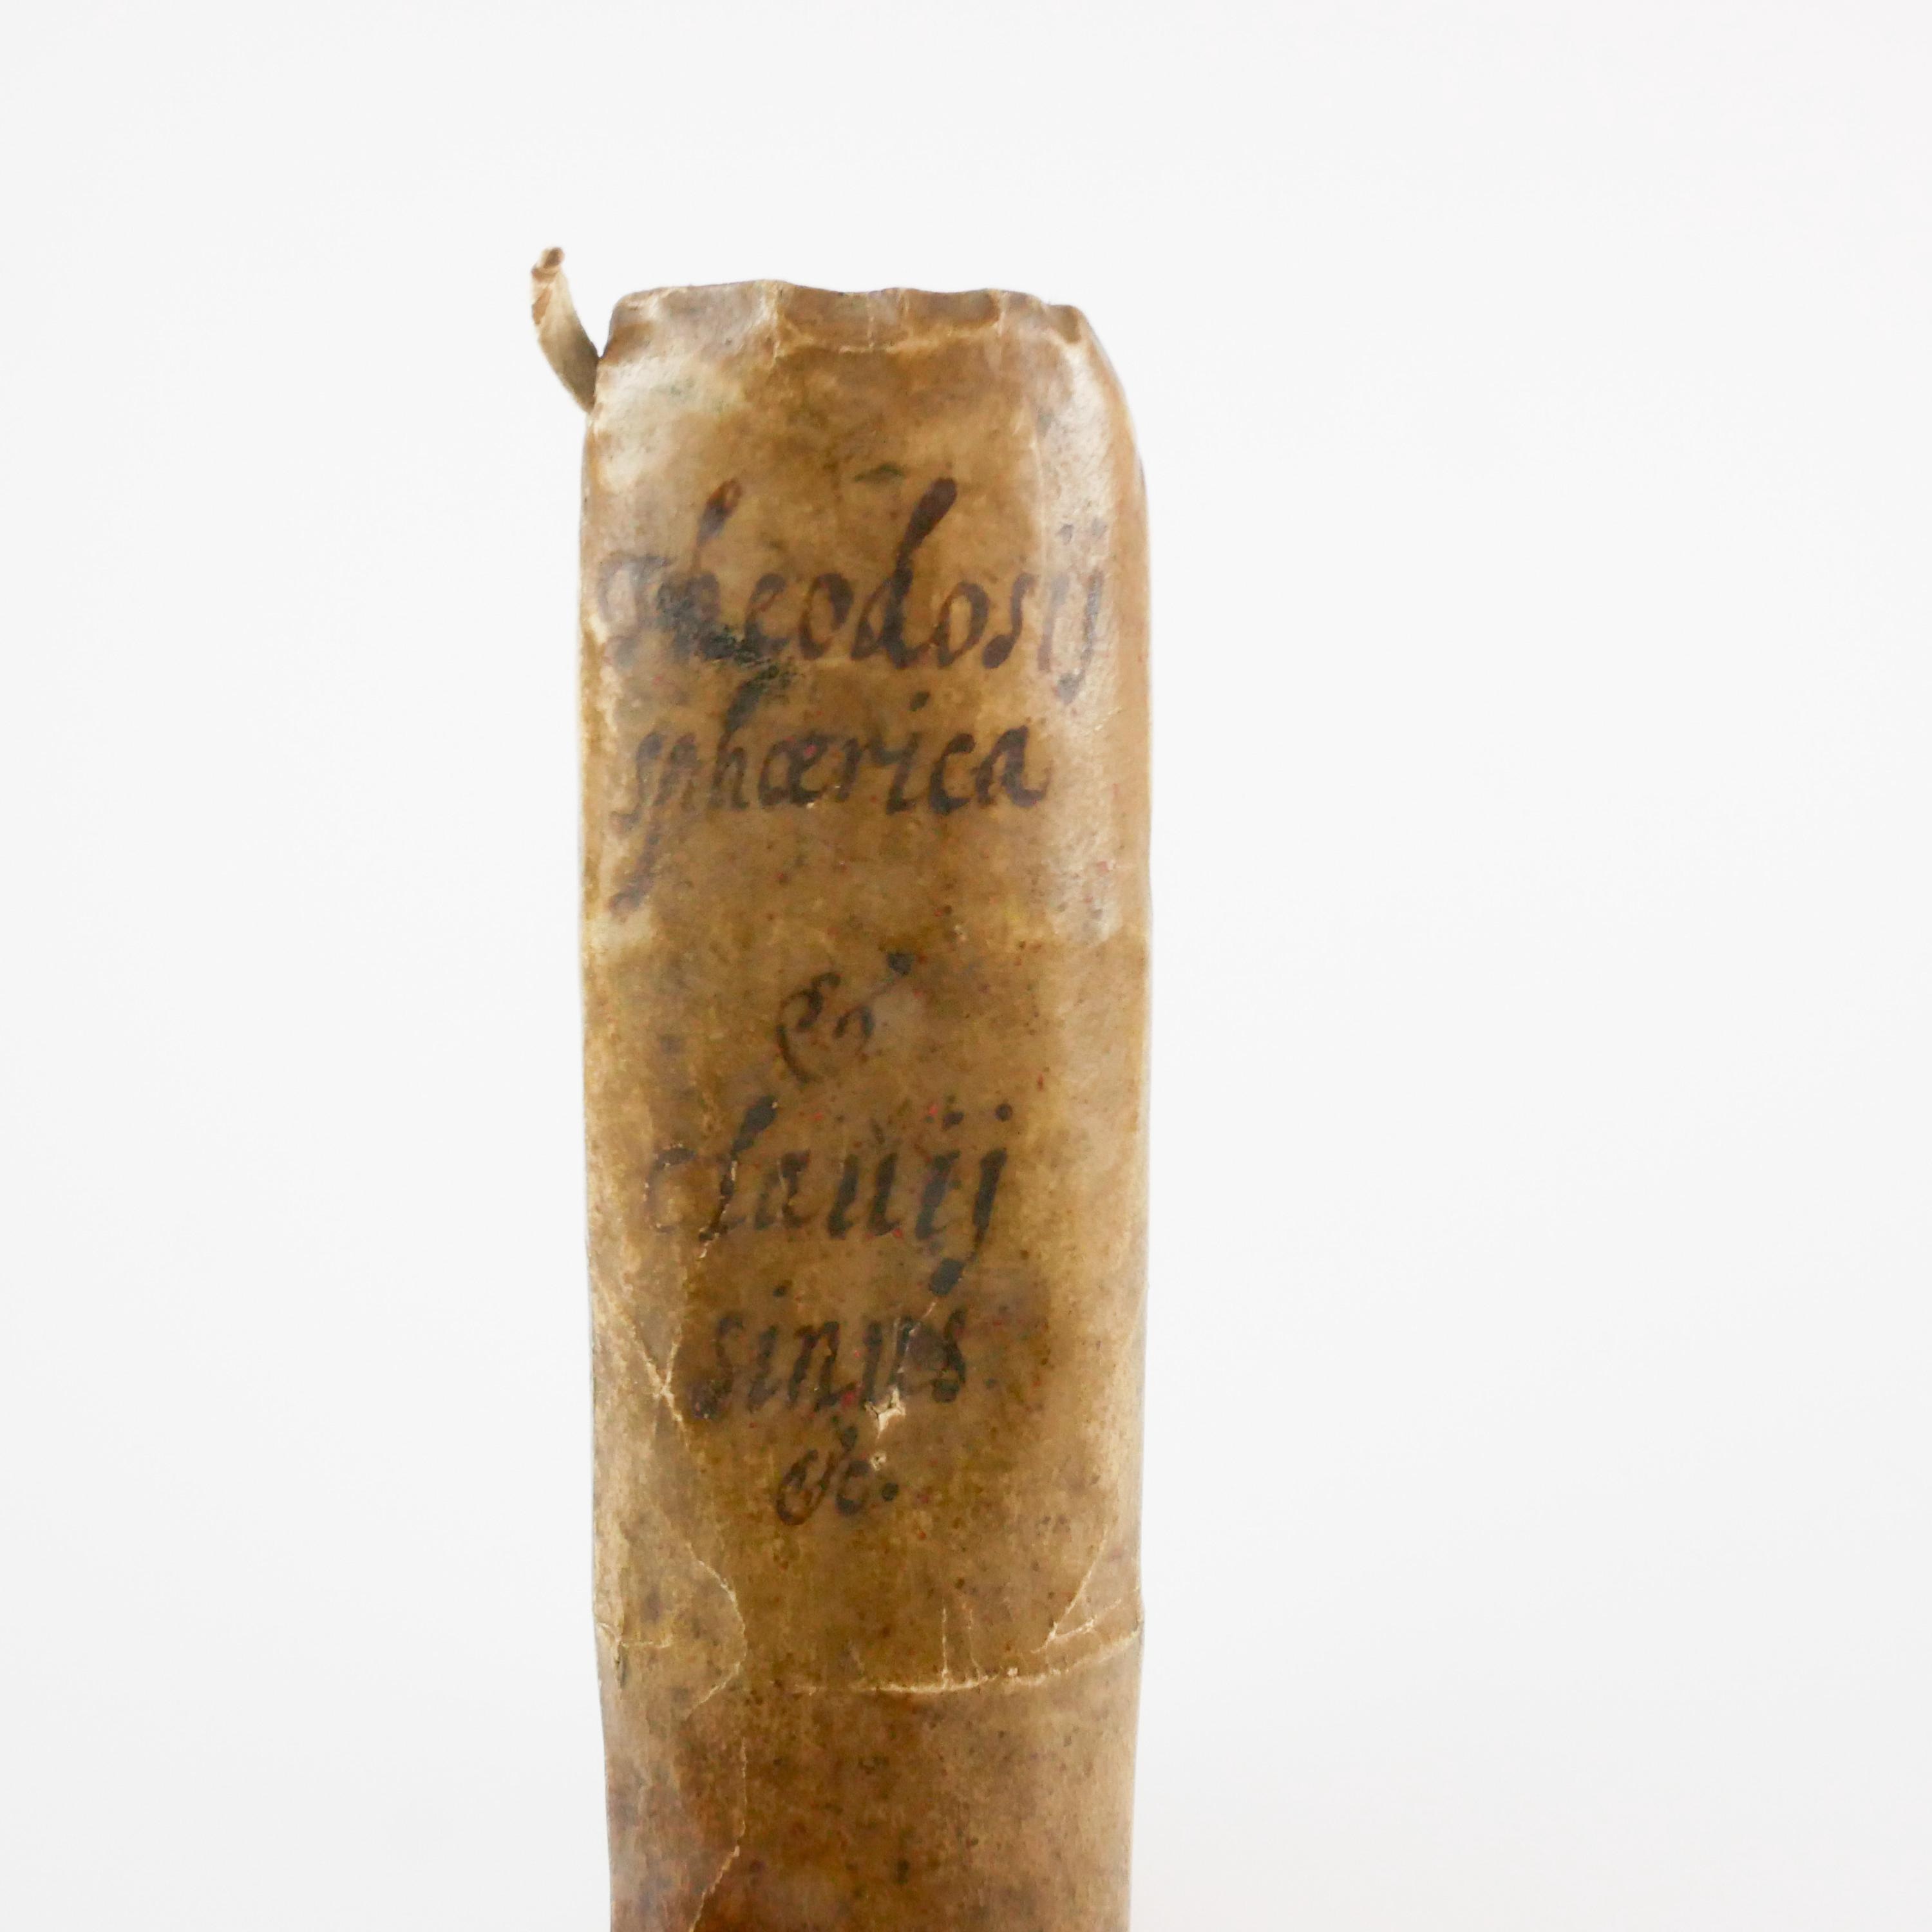 Theodosij
sphærica
&
clauij
sinus.
&c.